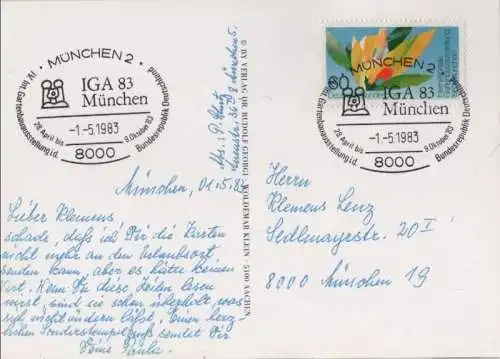 MÜNCHEN 2
IV. Int. Gartenbauausstellung i.d. Bundesrepublik Deutschland
IGA 83
München
28. April bis 9. Oktober 83
-1.-5.1983
8000
München, 01.5.83
Lieber Klemens
schade, daß ich Dir die Karten
nicht mehr an den Urlaubsort
senden kann, aber es hätte keinen
Wert. Wenn Du diese Zeilen lesen
wirst, sind sie schon überholt, was
sich nicht ändern läßt. Einen herz-
lichen Sonderstempelgruß sendet Dir
Deine Paula
© BY VERLAG DR. RUDOLF GEORGI, WOLDEMAR KLEIN · 5100 AACHEN
MÜNCHEN 2
IV. Int. Gartenbauausstellung i.d. Bundesrepublik
IGA 83
München
28. April bis 9. Oktober 83
-1.-5.1983
8000
Herrn
Klemens Lenz
Sedlmayrstr. 20 I
8000 München 19